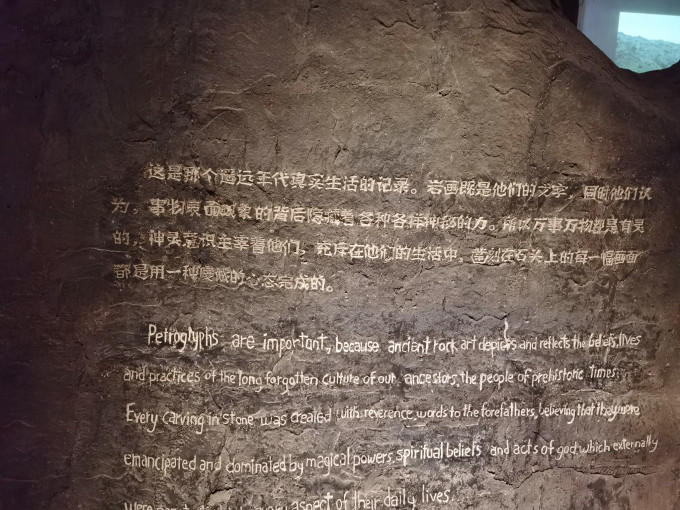 这是那个遥远年代真实生活的记录。岩画既是他们的文字，同时他们认
为，事物表面现象的背后隐藏着各种各样神秘的力。所以万事万物都是有灵
的，神灵意识主宰着他们，充斥在他们的生活中。凿刻在石头上的每一幅画面
都是用一种虔诚的心态完成的。
Petroglyphs are important, because ancient rock art depicts and reflects the beliefs, lives
and practices of the long forgotten culture of our ancestors, the people of prehistoric times.
Every carving in stone was created with reverence words to the forefathers, believing that they were
emancipated and dominated by magical powers, spiritual beliefs and acts of god which externally
were every aspect of their daily lives.